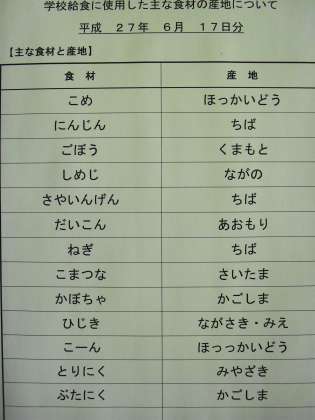 学校給食に使用した主な食材の産地について
平成　２７年　６月　１７日分
【主な食材と産地】
食　材　産　地
こめ　ほっかいどう
にんじん　ちば
ごぼう　くまもと
しめじ　ながの
さやいんげん　ちば
だいこん　あおもり
ねぎ　ちば
こまつな　さいたま
かぼちゃ　かごしま
ひじき　ながさき・みえ
こーん　ほっっかいどう
とりにく　みやざき
ぶたにく　かごしま